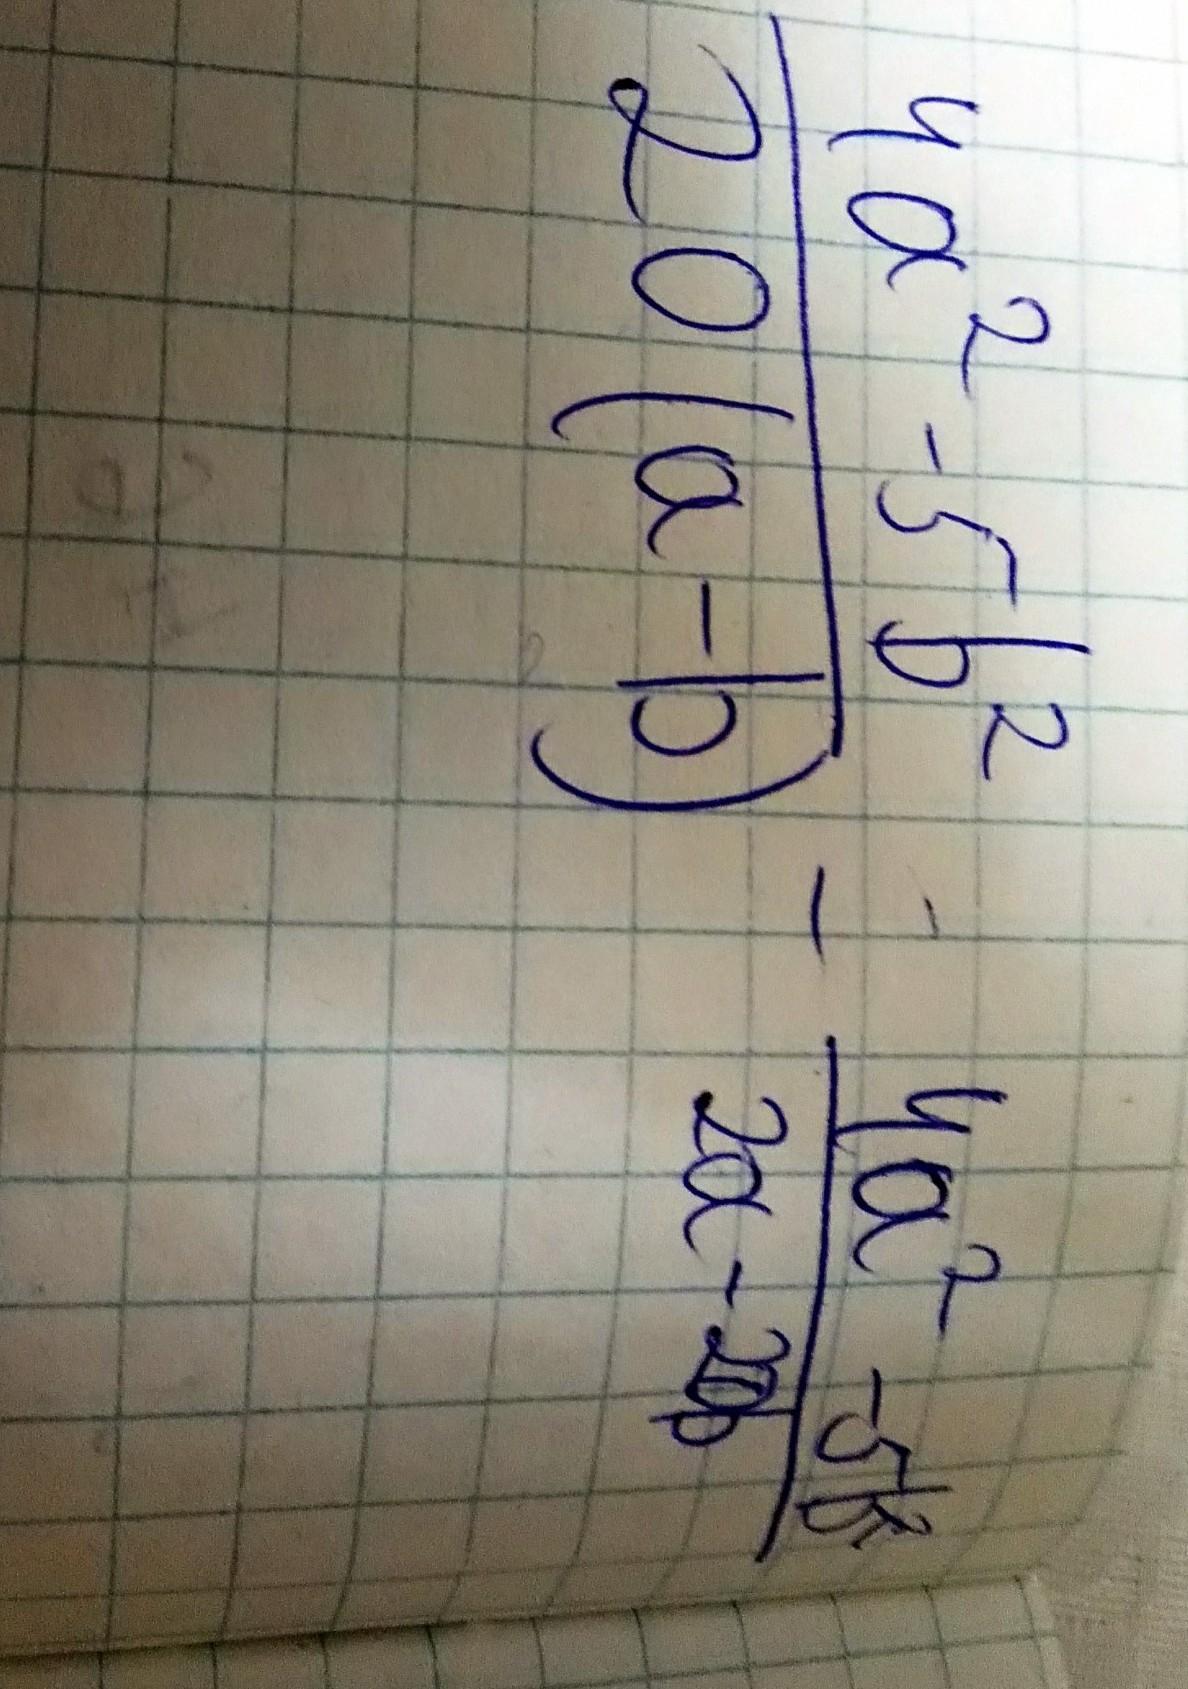 4a² - 5b² / 20(a - b) - 4a² - 5b² / 2a - 20b